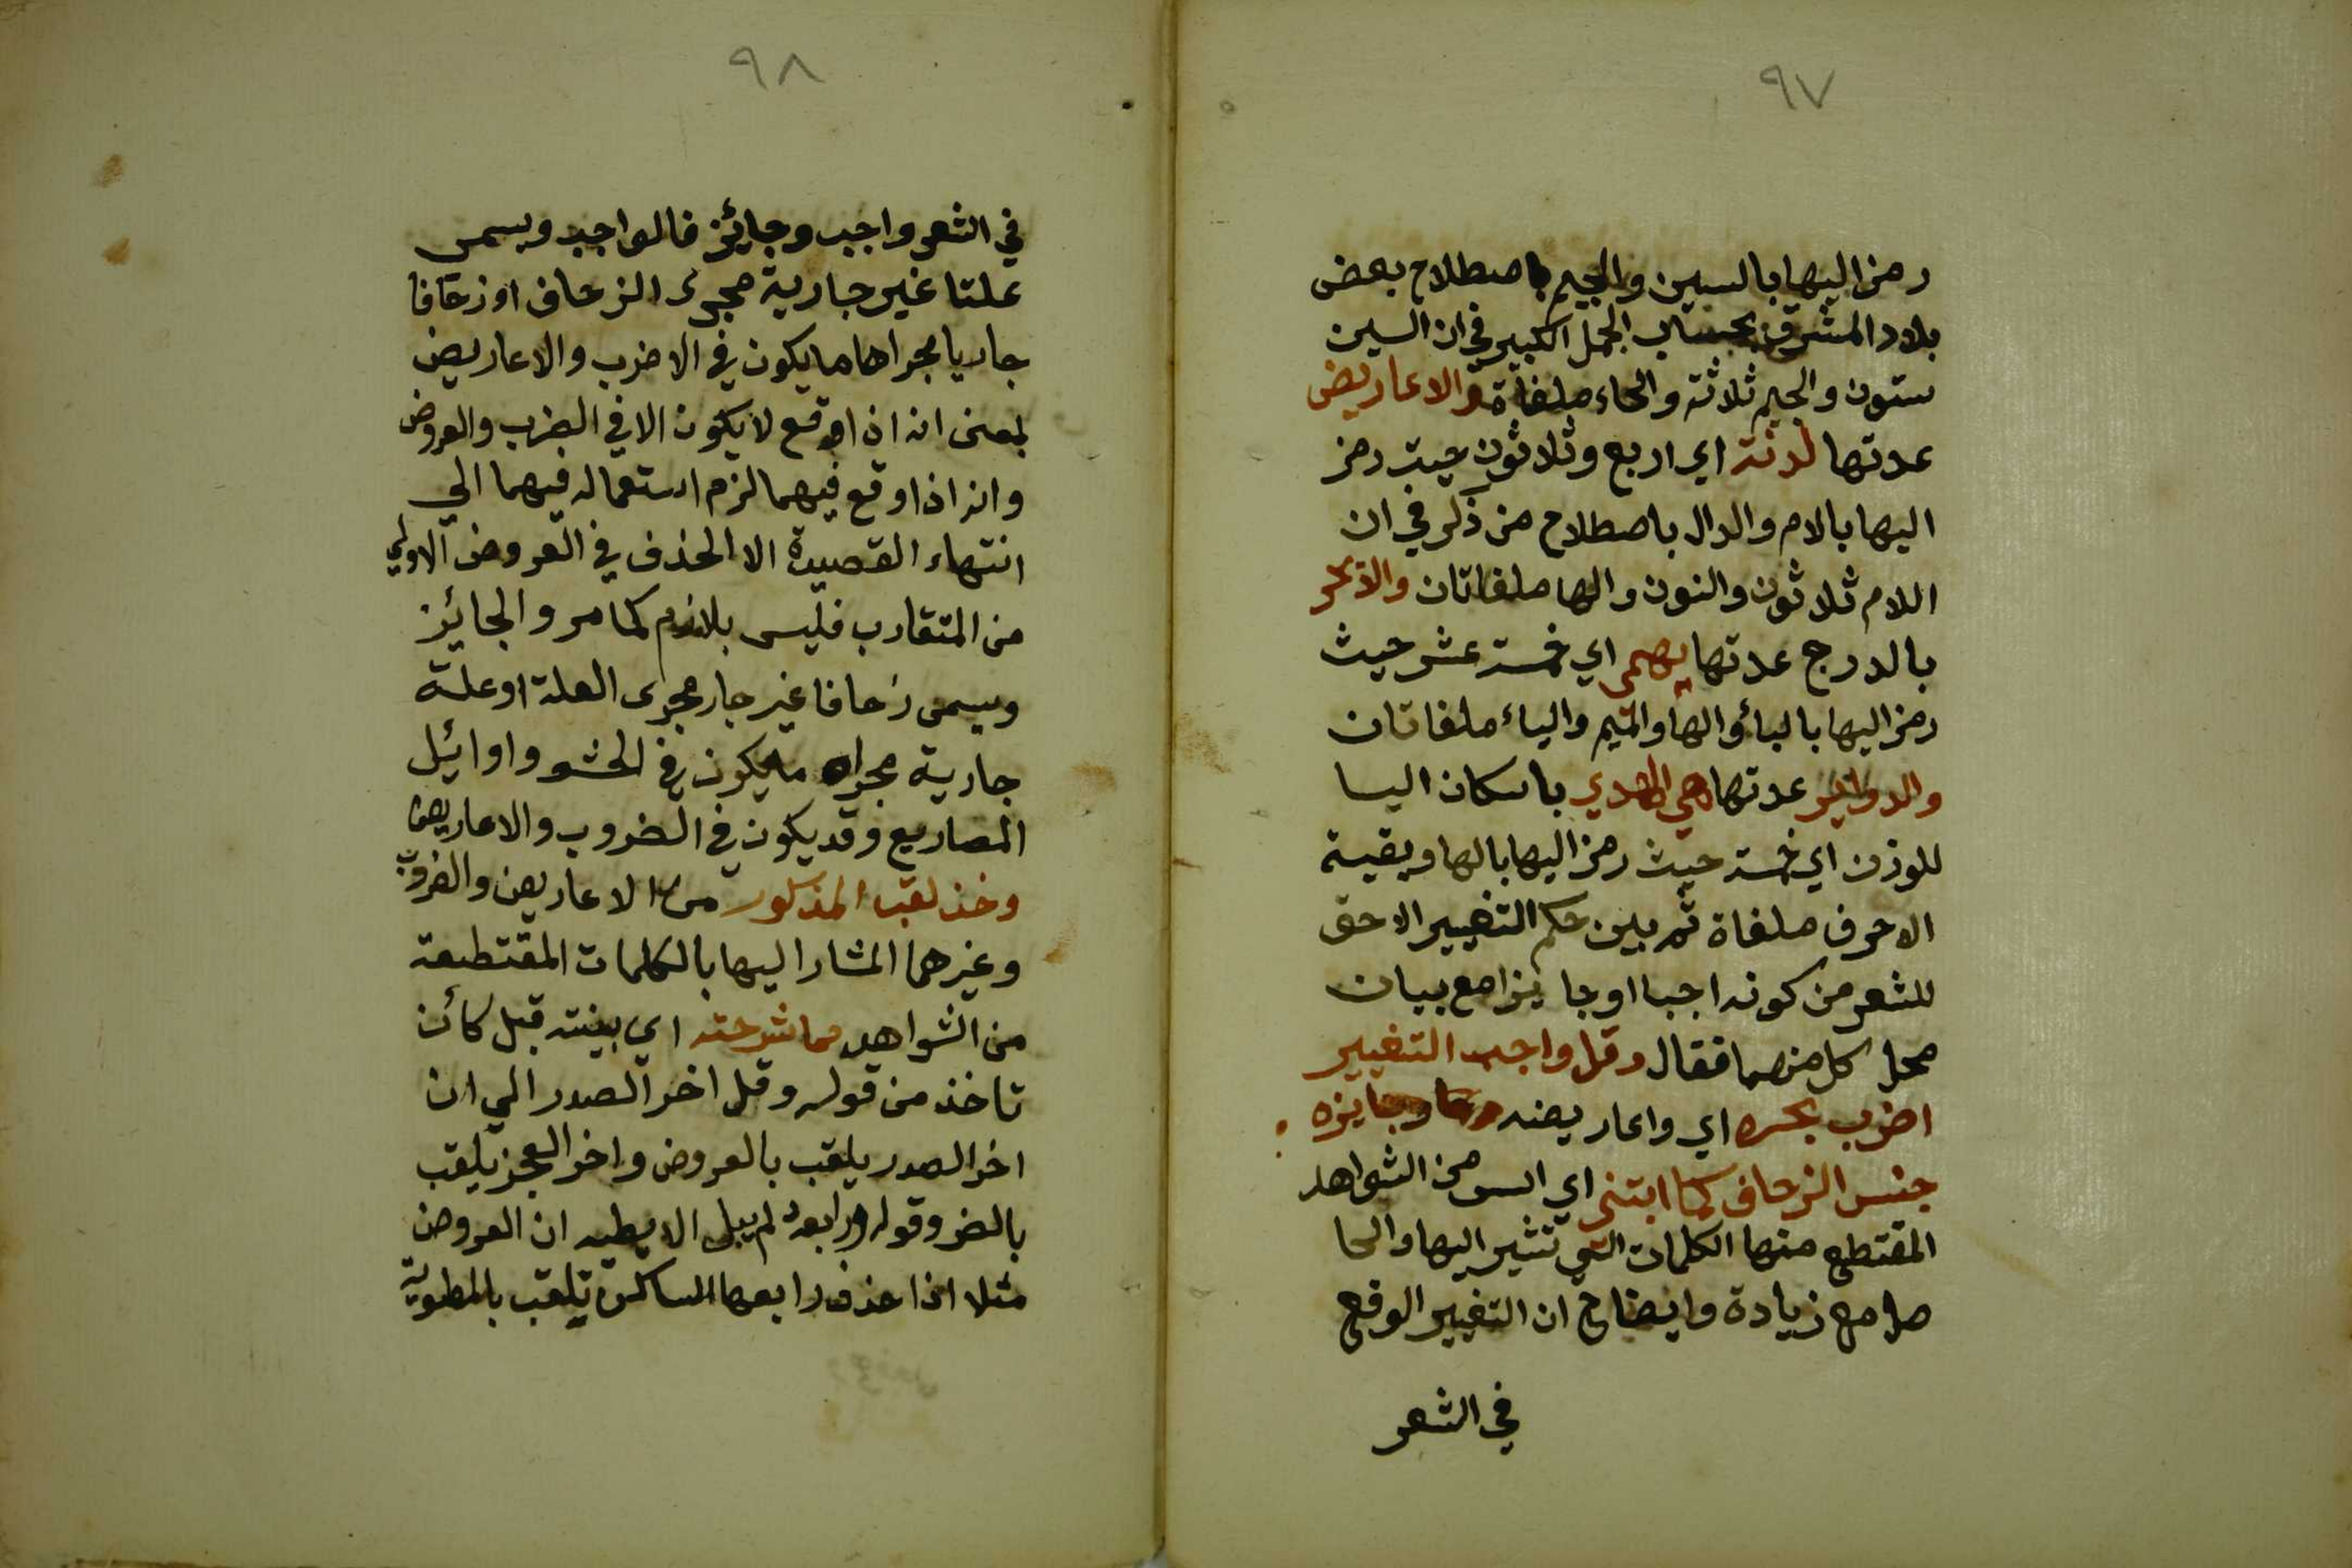 ٩٧
رمز اليها بالسين والجيم باصطلاح بعض
بلاد المشرق بحساب الجمل الكبير في ان السين
ستون والجيم ثلاثة والحاء ملغاة والاعاريض
عدتها لدنه اي اربع وثلاثون حيث رمز
اليها بالام والدال باصطلاح من ذكر في ان
اللام ثلاثون والنون والها ملغاتان والابحر
بالدرج عدتها يهمي اي خمسة عشر حيث
رمز اليها باليأ والها والميم والياء ملغاتان
والدواير عدتها هي المهدي باسكان اليا
للوزن اي خمسة حيث رمز اليها بالها وبقية
الاحرف ملغاة ثم بين حكم التغيير الاحق
للشعر من كونه اجبا او جايزا مع بيان
محل كل منهما فقال وقل واجب التغيير
اضرب بحره اي واعاريضه وجايزه
جنس الزحاف كما ابتنى اي من الشواهد
المقتطع منها الكلمات التي تشير اليها والحا
صل مع زيادة وايضاح ان التغيير الوقع
في الشعر
٩٨
في الشعر واجب وجايئز فالواجب ويسمى
علتا غير جارية مجرى الزحاف او زحافا
جاريا مجراها ما يكون في الاضرب والاعاريض
بمعنى انه اذا وقع لا يكون الا في الضرب والعروض
وانه اذا وقع فيهما لزم استعماله فيهما الي
انتهاء القصيدة الا الحذف في العروض الاولي
من المتقارب فليس بلازم كما مر والجايئز
ويسمى زحافا غير جار مجرى العلة او علة
جارية مجراه ما يكون في الحشو واوايئل
المصاريع وقد يكون في الضروب والاعاريض
وخذ لقب المذكور من الاعاريض والضروب
وغيرهما المشار اليها بالكلمات المقتطعة
من الشواهد مما شرحته اي بينته قبل كأن
تاخذ من قوله وقل اخر الصدر الي ان
اخر الصدر يلقب بالعروض واخر العجز يلقب
بالضر وقوله ورابعه لم يبل الا بطيه ان العروض
مثلا اذا حذف رابعها الساكن تلقب بالمطوية